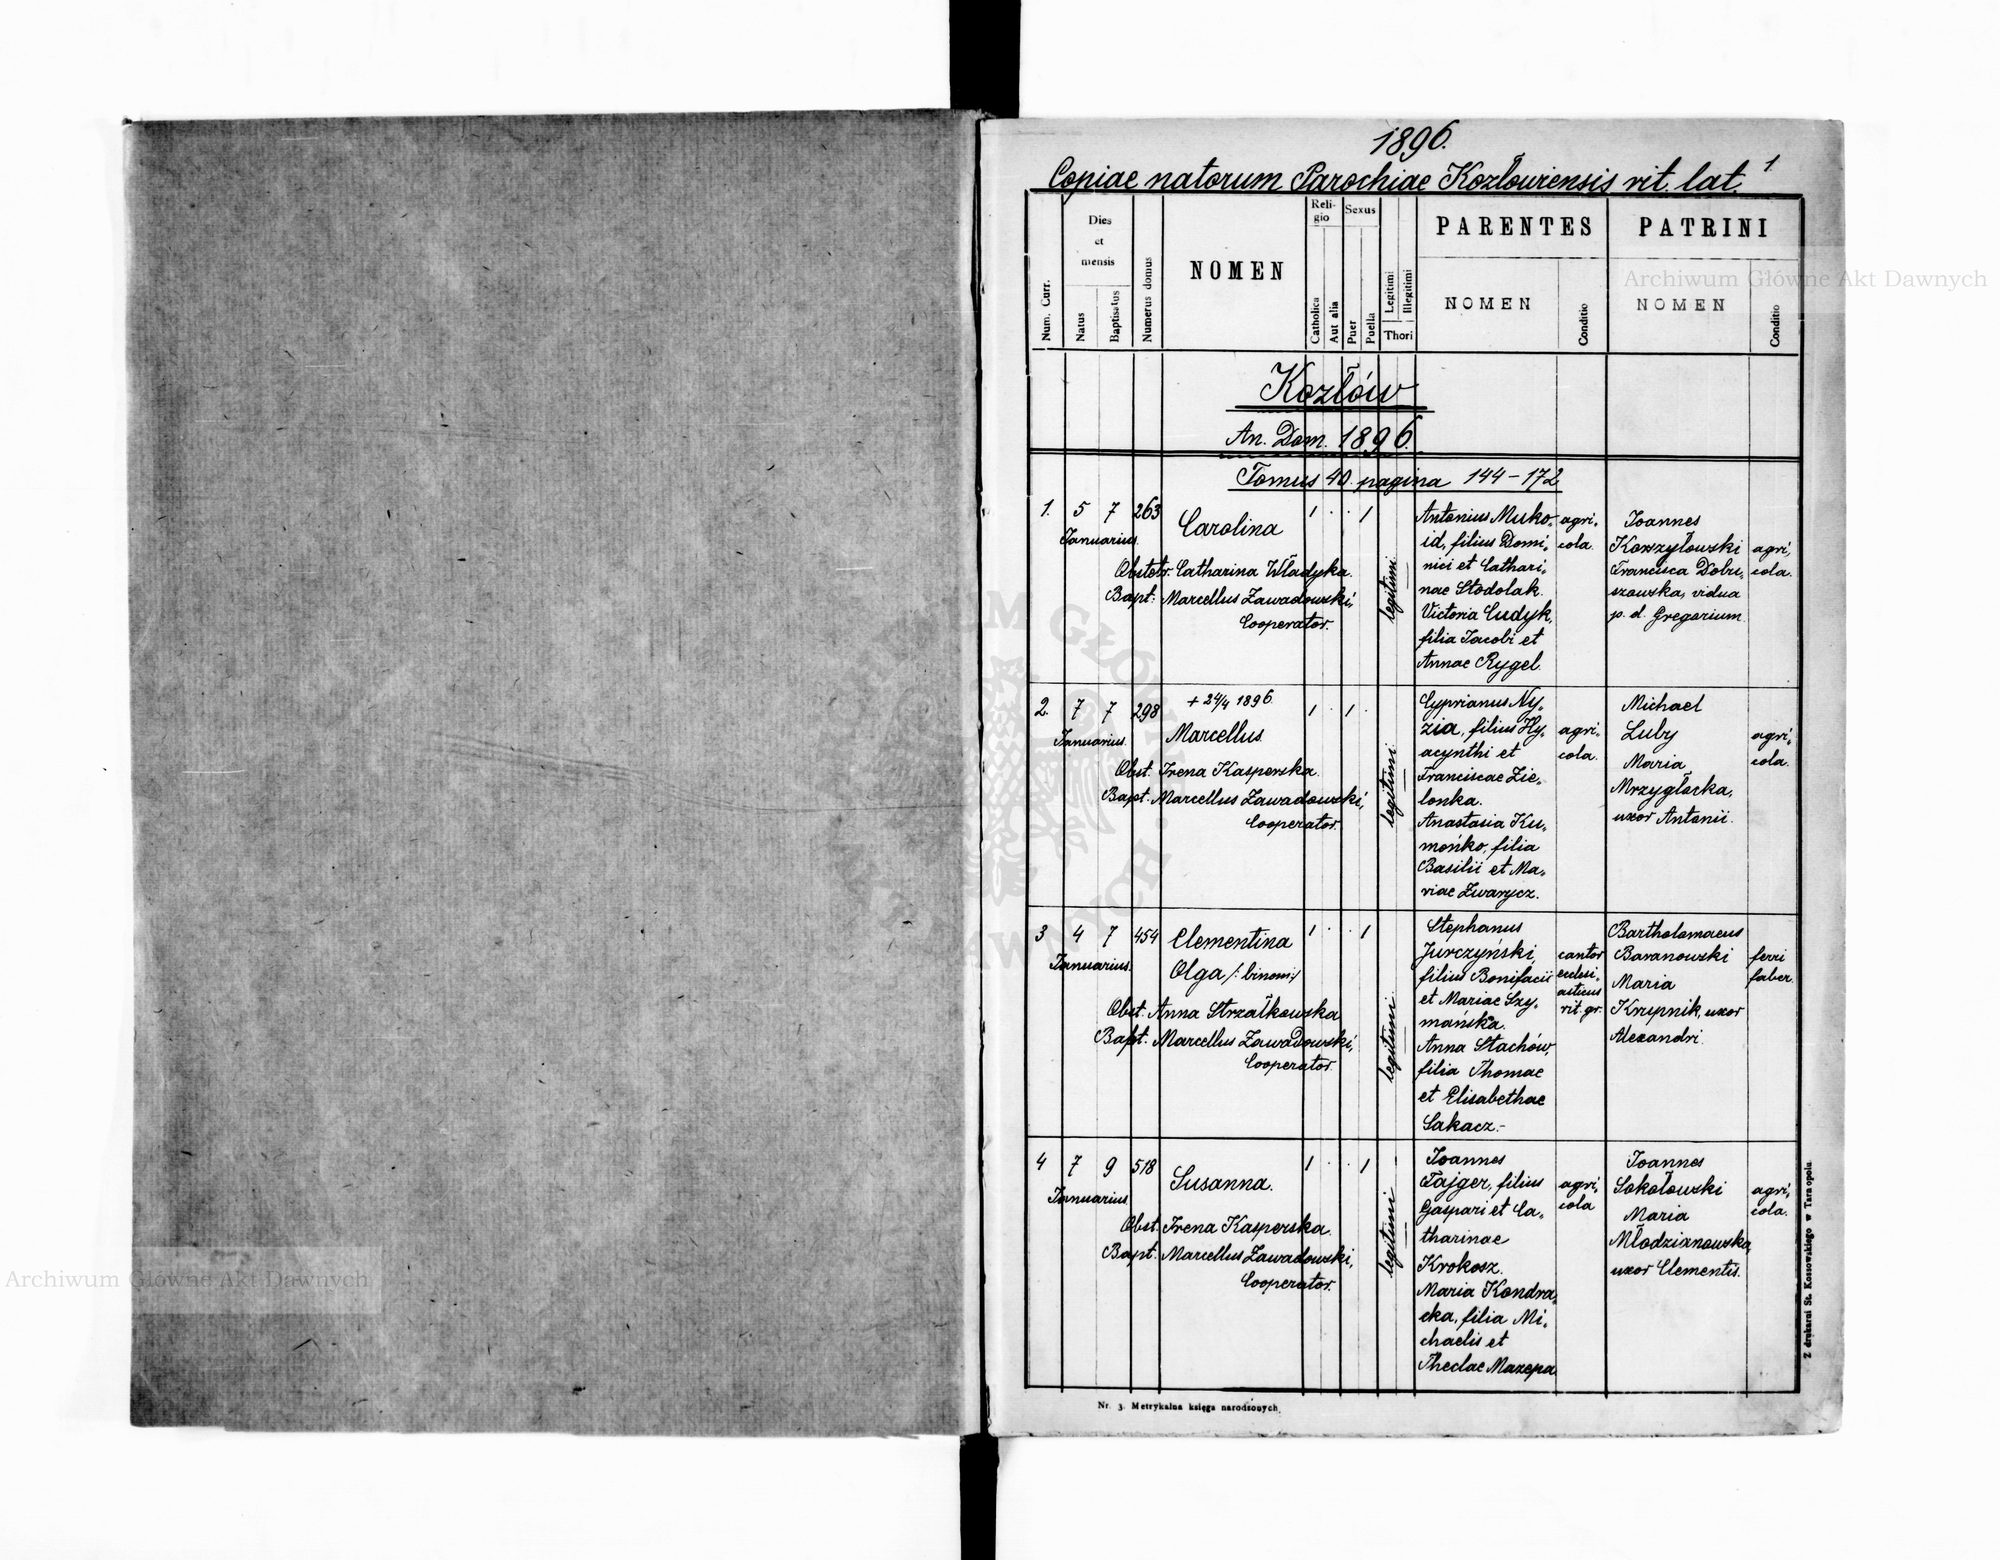 1896.
Copiae natorum Parochiae Kozłoviensis rit. lat.
1.
Num. Curr.
Dies et mensis
Natus
Baptisatus
Numerus domus
NOMEN
Religio
Catholica
Aut alia
Sexus
Puer
Puella
Legitimi
Illegitimi
Thori
PARENTES
NOMEN
Conditio
PATRINI
NOMEN
Conditio
Archiwum Główne Akt Dawnych
Kozłów
An. Dom. 1896.
Tomus 40. pagina 144-172
1. 5 7 263
Januarius.
Carolina
Obstetr. Catharina Władyka.
Bapt. Marcellus Zawadowski,
Cooperator.
legitimi
Antonius Muko-
id, filius Domi-
nici et Cathari-
nae Stodolak.
Victoria Cudyk,
filia Jacobi et
Annae Rygel.
agri-
cola.
Joannes
Korzyłowski
Francisca Dobru-
szowska, vidua
p. d. Gregorium.
agri-
cola.
2. 7 7 298
Januarius.
+ 24/4 1896.
Marcellus.
Obst. Irena Kasperska.
Bapt. Marcellus Zawadowski,
Cooperator.
legitimi
Cyprianus Ny-
zia, filius Hy-
acynthi et
Franciscae Zie-
lonka.
Anastasia Ku-
mońko, filia
Basilii et Ma-
riae Zwarycz.
agri-
cola.
Michael
Luby
Maria
Mrzygłocka,
uxor Antonii.
agri-
cola.
3 4 7 454
Januarius.
Clementina
Olga /: binom:/
Obst. Anna Strzałkowska
Bapt. Marcellus Zawadowski,
Cooperator.
legitimi
Stephanus
Jurczyński,
filius Bonifacii
et Mariae Szy-
mańska.
Anna Stachów,
filia Thomae
et Elisabethae
Sakacz.-
cantor
ecclesi-
asticus
rit. gr.
Bartholomaeus
Baranowski
Maria
Krupnik, uxor
Alexandri.
ferri
faber.
4 7 9 518
Januarius
Susanna.
Obst. Irena Kasperska.
Bapt. Marcellus Zawadowski,
Cooperator.
legitimi
Joannes
Fajger, filius
Gaspari et Ca-
tharinae
Krokosz.
Maria Kondra-
cka, filia Mi-
chaelis et
Theclae Mazepa
agri-
cola
Joannes
Sokołowski
Maria
Młodzianowska,
uxor Clementis.
agri-
cola.
Z drukarni St. Kossowskiego w Tarnopolu
Nr. 3. Metrykalna księga narodzonych.
Archiwum Główne Akt Dawnych